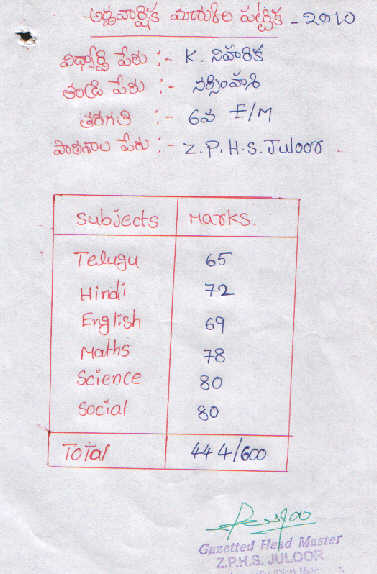 అర్ధవార్షిక మార్కుల పట్టిక - 2010
విద్యార్థి పేరు :- K. నిహారిక
తండ్రి పేరు :- నర్సింహ
తరగతి :- 6వ E/M
పాఠశాల పేరు :- Z.P.H.S. Juloor.
Subjects Marks.
Telugu 65
Hindi 72
English 69
Maths 78
Science 80
Social 80
Total 444/600
Gazetted Head Master
Z.P.H.S. JULOOR